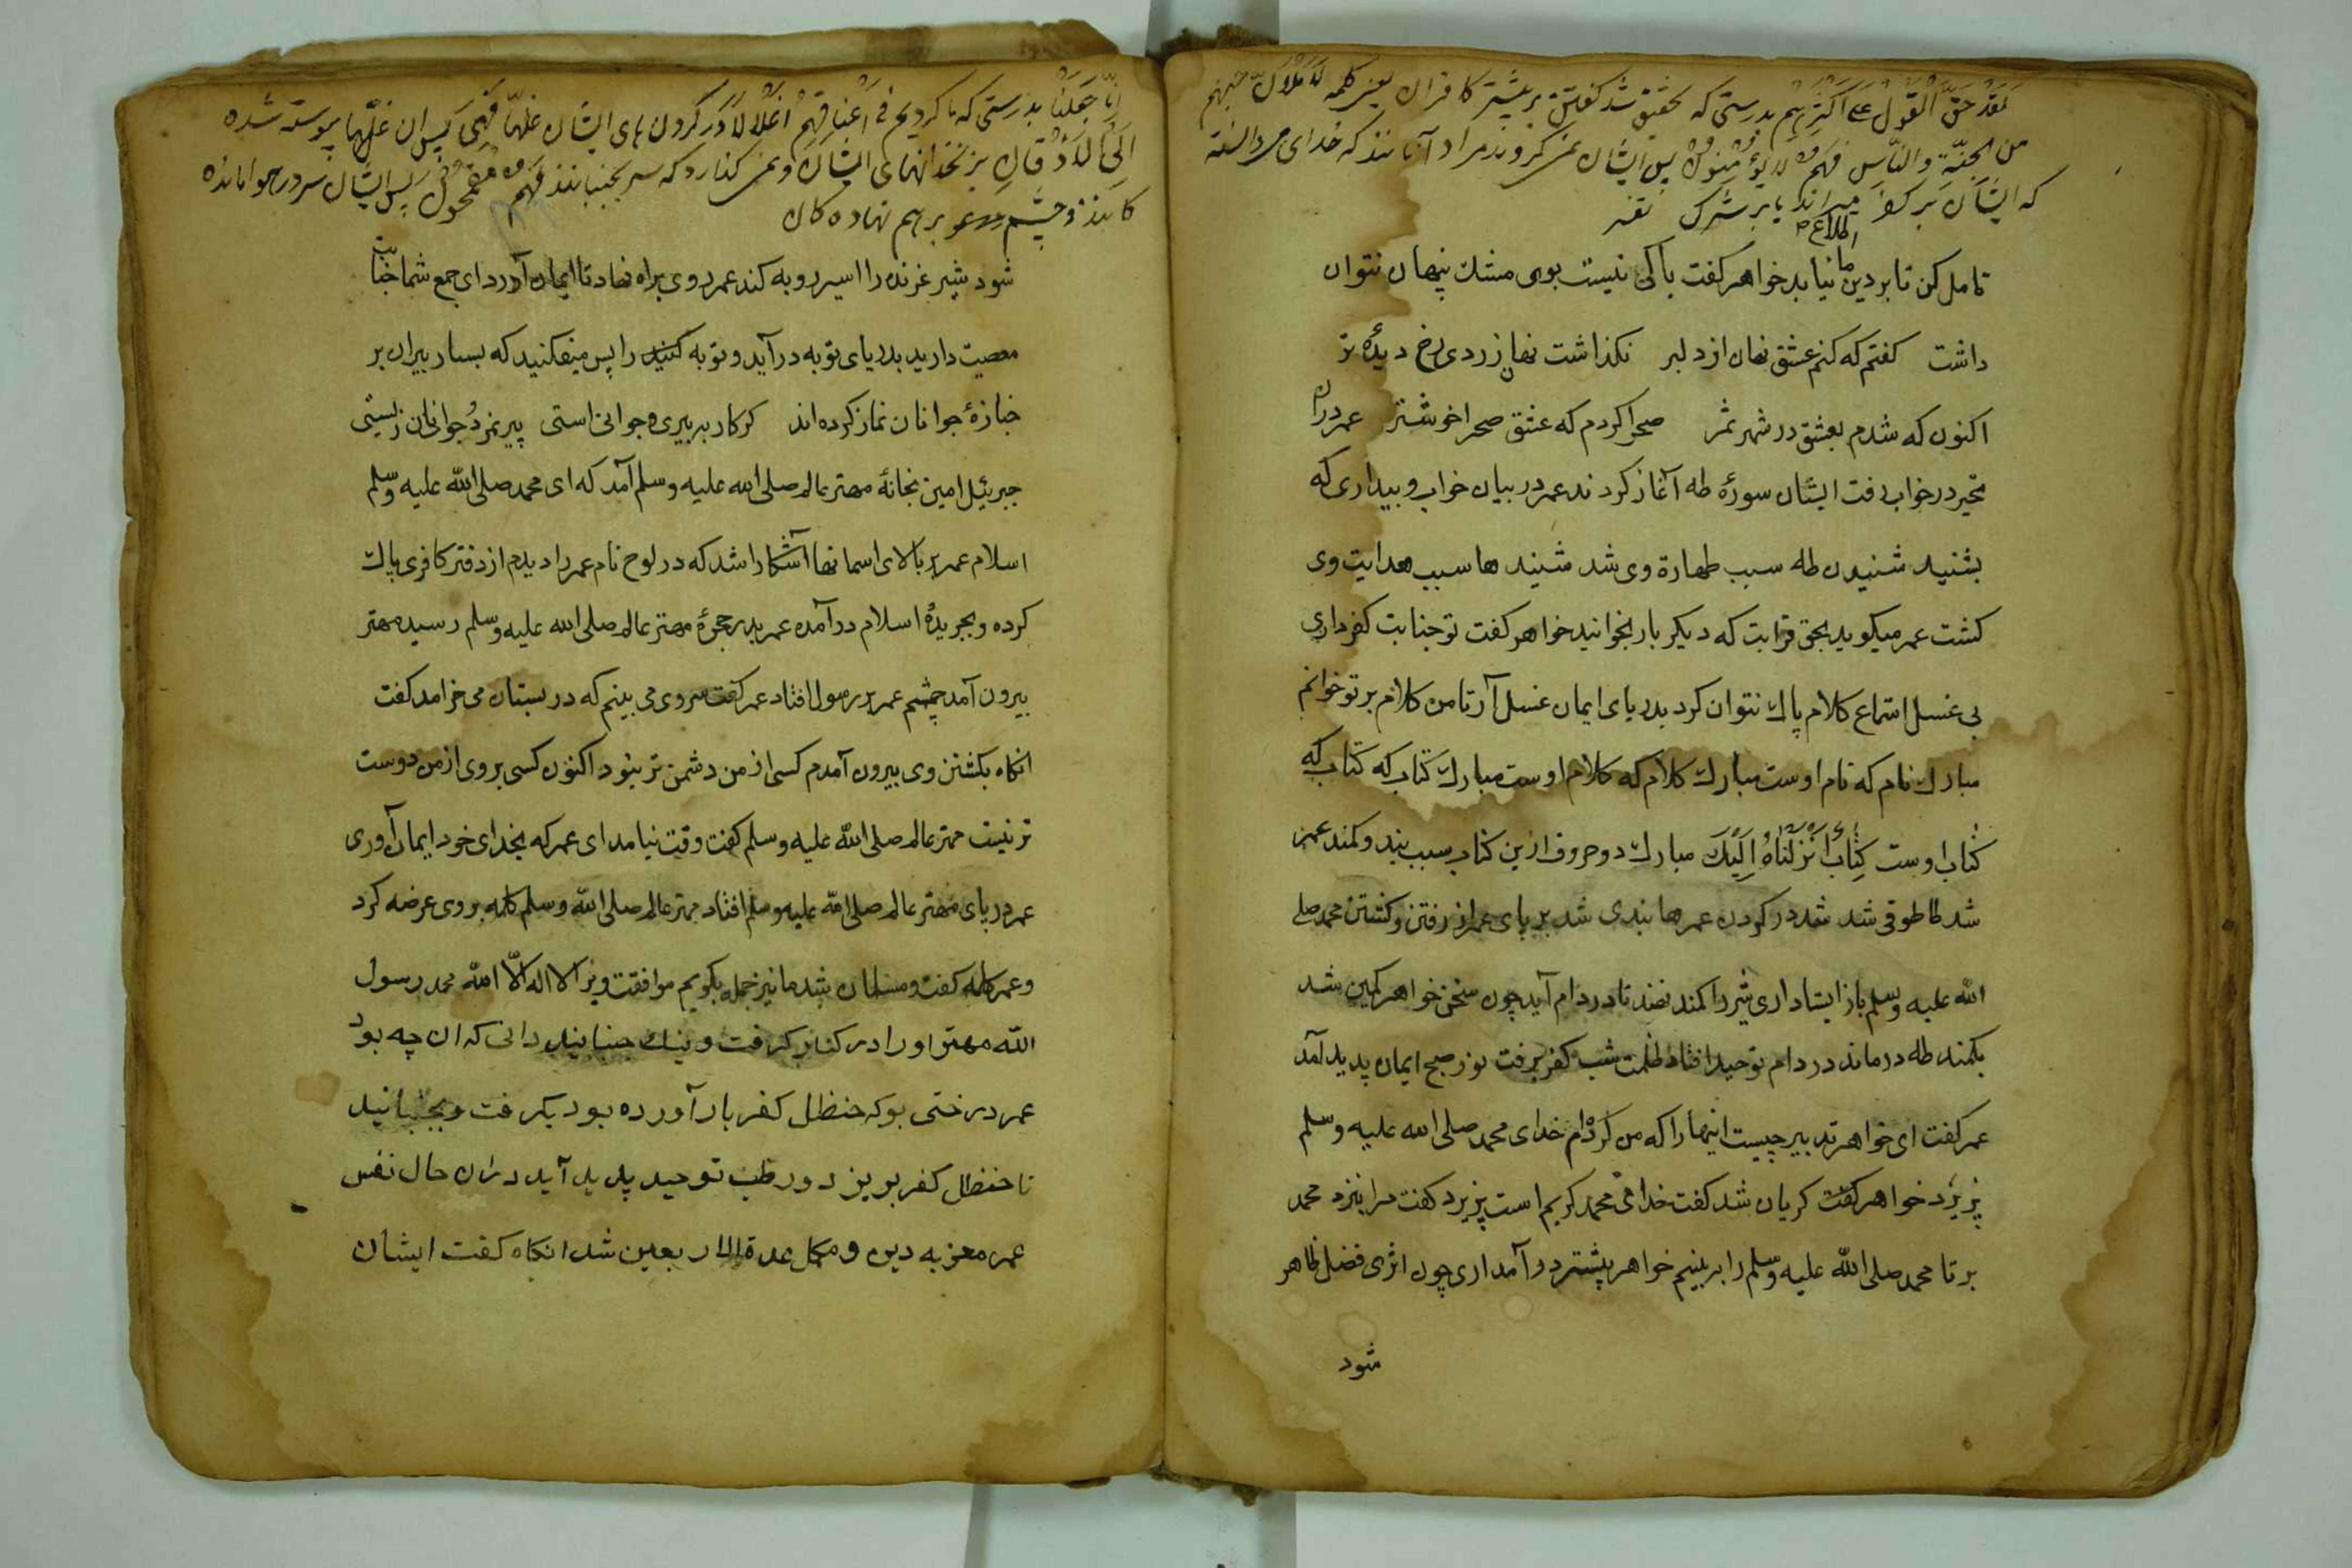 لَقَدْ حَقَّ الْقَوْلُ عَلَى اَكْثَرِهِم بدرستی که تحقیق شد کفتن بر بیشتر کافران یعنی کلمه لَاَمْلَاَنَّ جَهَنَّم
من الجنّة والنّاس فَهُم لَا يُؤْمِنُون پس ایشان نمی کروند مراد آنانند که خدای می دانسته
که ایشان بر کفر میراند یا بر شرک
اطلاع
تامل کن تا بر دین ما نیاید خواهر کفت باکی نیست بوی مشك پنهان نتوان
داشت کفتم که کنم عشق نهان از دلبر نکذاشت نهان زردی رخ دیدهٔ تر
اکنون که شدم بعشق در شهر ثمر صحرا کردم که عشق صحرا خوشتر عمر دران
تحیر در خواب رفت ایشان سورهٔ طه آغاز کردند عمر در بیان خواب و بیداری که
بشنید شنیدن طه سبب طهارة وی شد شنیند ها سبب هدایت وی
کشت عمر میکوید بحق قرابت که دیکر بار بخوانید خواهر کفت تو جنابت کفر داری
بی غسل استماع کلام پاك نتوان کرد بدریای ایمان غسل آر تا من کلام بر تو خوانم
مبارك نام که نام اوست مبارك کلام که کلام اوست مبارك کتاب که کتاب که
کتاب اوست كِتَابٌ اَنْزَلْنَاهُ اِلَيْكَ مبارك دو حروف ازین کتاب سبب بند و کمند عمر
شد طا طوقی شد شد در کردن عمر ها بندی شد بر پای عمر از رفتن و کشتن محمد صلی
الله علیه وسلم باز ایستاد اری شیر را کمند نهند تا در دام آید چون سخن خواهر کمین شد
بکمند طه درماند در دام توحید افتاد ظلمت شب کفر برفت نور صبح ایمان پدید آمد
عمر کفت ای خواهر تدبیر چیست اینها را که من کرده‌ام خدای محمد صلی الله علیه وسلم
پزیرد خواهر کفت کریان شد کفت خدای محمد کریم است پزیرد کفت مرا بنزد محمد
بر تا محمد صلی الله علیه وسلم را ببینم خواهر پیشتر در آمد اری چون اثری فضل ظاهر
شود
اِنَّا جَعَلْنَا بدرستی که ما کردیم فِی اَعْنَاقِهِمْ اَغْلَالًا در کردن های ایشان غلها فَهِیَ پس ان غلها پیوسته شده
اِلَی الْاَذْقَانِ بزنخدانهای ایشان و نمی کذارد که سر بجنبانند فَهُم مُقْمَحُون پس ایشان سر در هوا مانده
کانند و چشم بر هم نهاده کان
شود شیر غرنده را اسیر روبه کند عمر روی براه نهاد تا ایمان آورد ای جمع شما جنابت
معصیت دارید بدریای توبه درآید و توبه کنید را پس میفکنید که بسیار پیران بر
جنازهٔ جوانان نماز کرده‌اند کر کار به پیری و جوانی استی پیر نمردُ جوانان زیستی
جبریٔیل امین بخانهٔ مهتر عالم صلی الله علیه وسلم آمد که ای محمد صلی الله علیه وسلم
اسلام عمر بر بالای اسمانها آشکارا شد که در لوح نام عمر را دیدم از دفتر کافری پاك
کرده و بجریدهٔ اسلام درآمده عمر بدر حجرهٔ مهتر عالم صلی الله علیه وسلم رسید مهتر
بیرون آمد چشم عمر بر رسول افتاد عمر کفت سروی می بینم که در بستان می خرامد کفت
انکاه بکشتن وی بیرون آمدم کسی از من دشمن تر نبود اکنون کسی بروی از من دوست
تر نیست مهتر عالم صلی الله علیه وسلم کفت وقت نیامد ای عمر که بخدای خود ایمان آوری
عمر در پای مهتر عالم صلی الله علیه وسلم افتاد مهتر عالم صلی الله وسلم کلمه بروی عرضه کرد
و عمر کلمه کفت و مسلمان شد ما نیز جمله بکوییم موافقت ویرا لا اله الّا الله محمد رسول
الله مهتر او را در کنار کرفت و نیك جنبانید دانی که ان چه بود
عمر درختی بو که حنظل کفر بار آورده بود بکرفت و بجنبانید
تا حنظل کفر بریزد و رطب توحید پدید آید دران حال نفس
عمر معز به دین و مکمل عدة الاربعین شد انکاه کفت ایشان